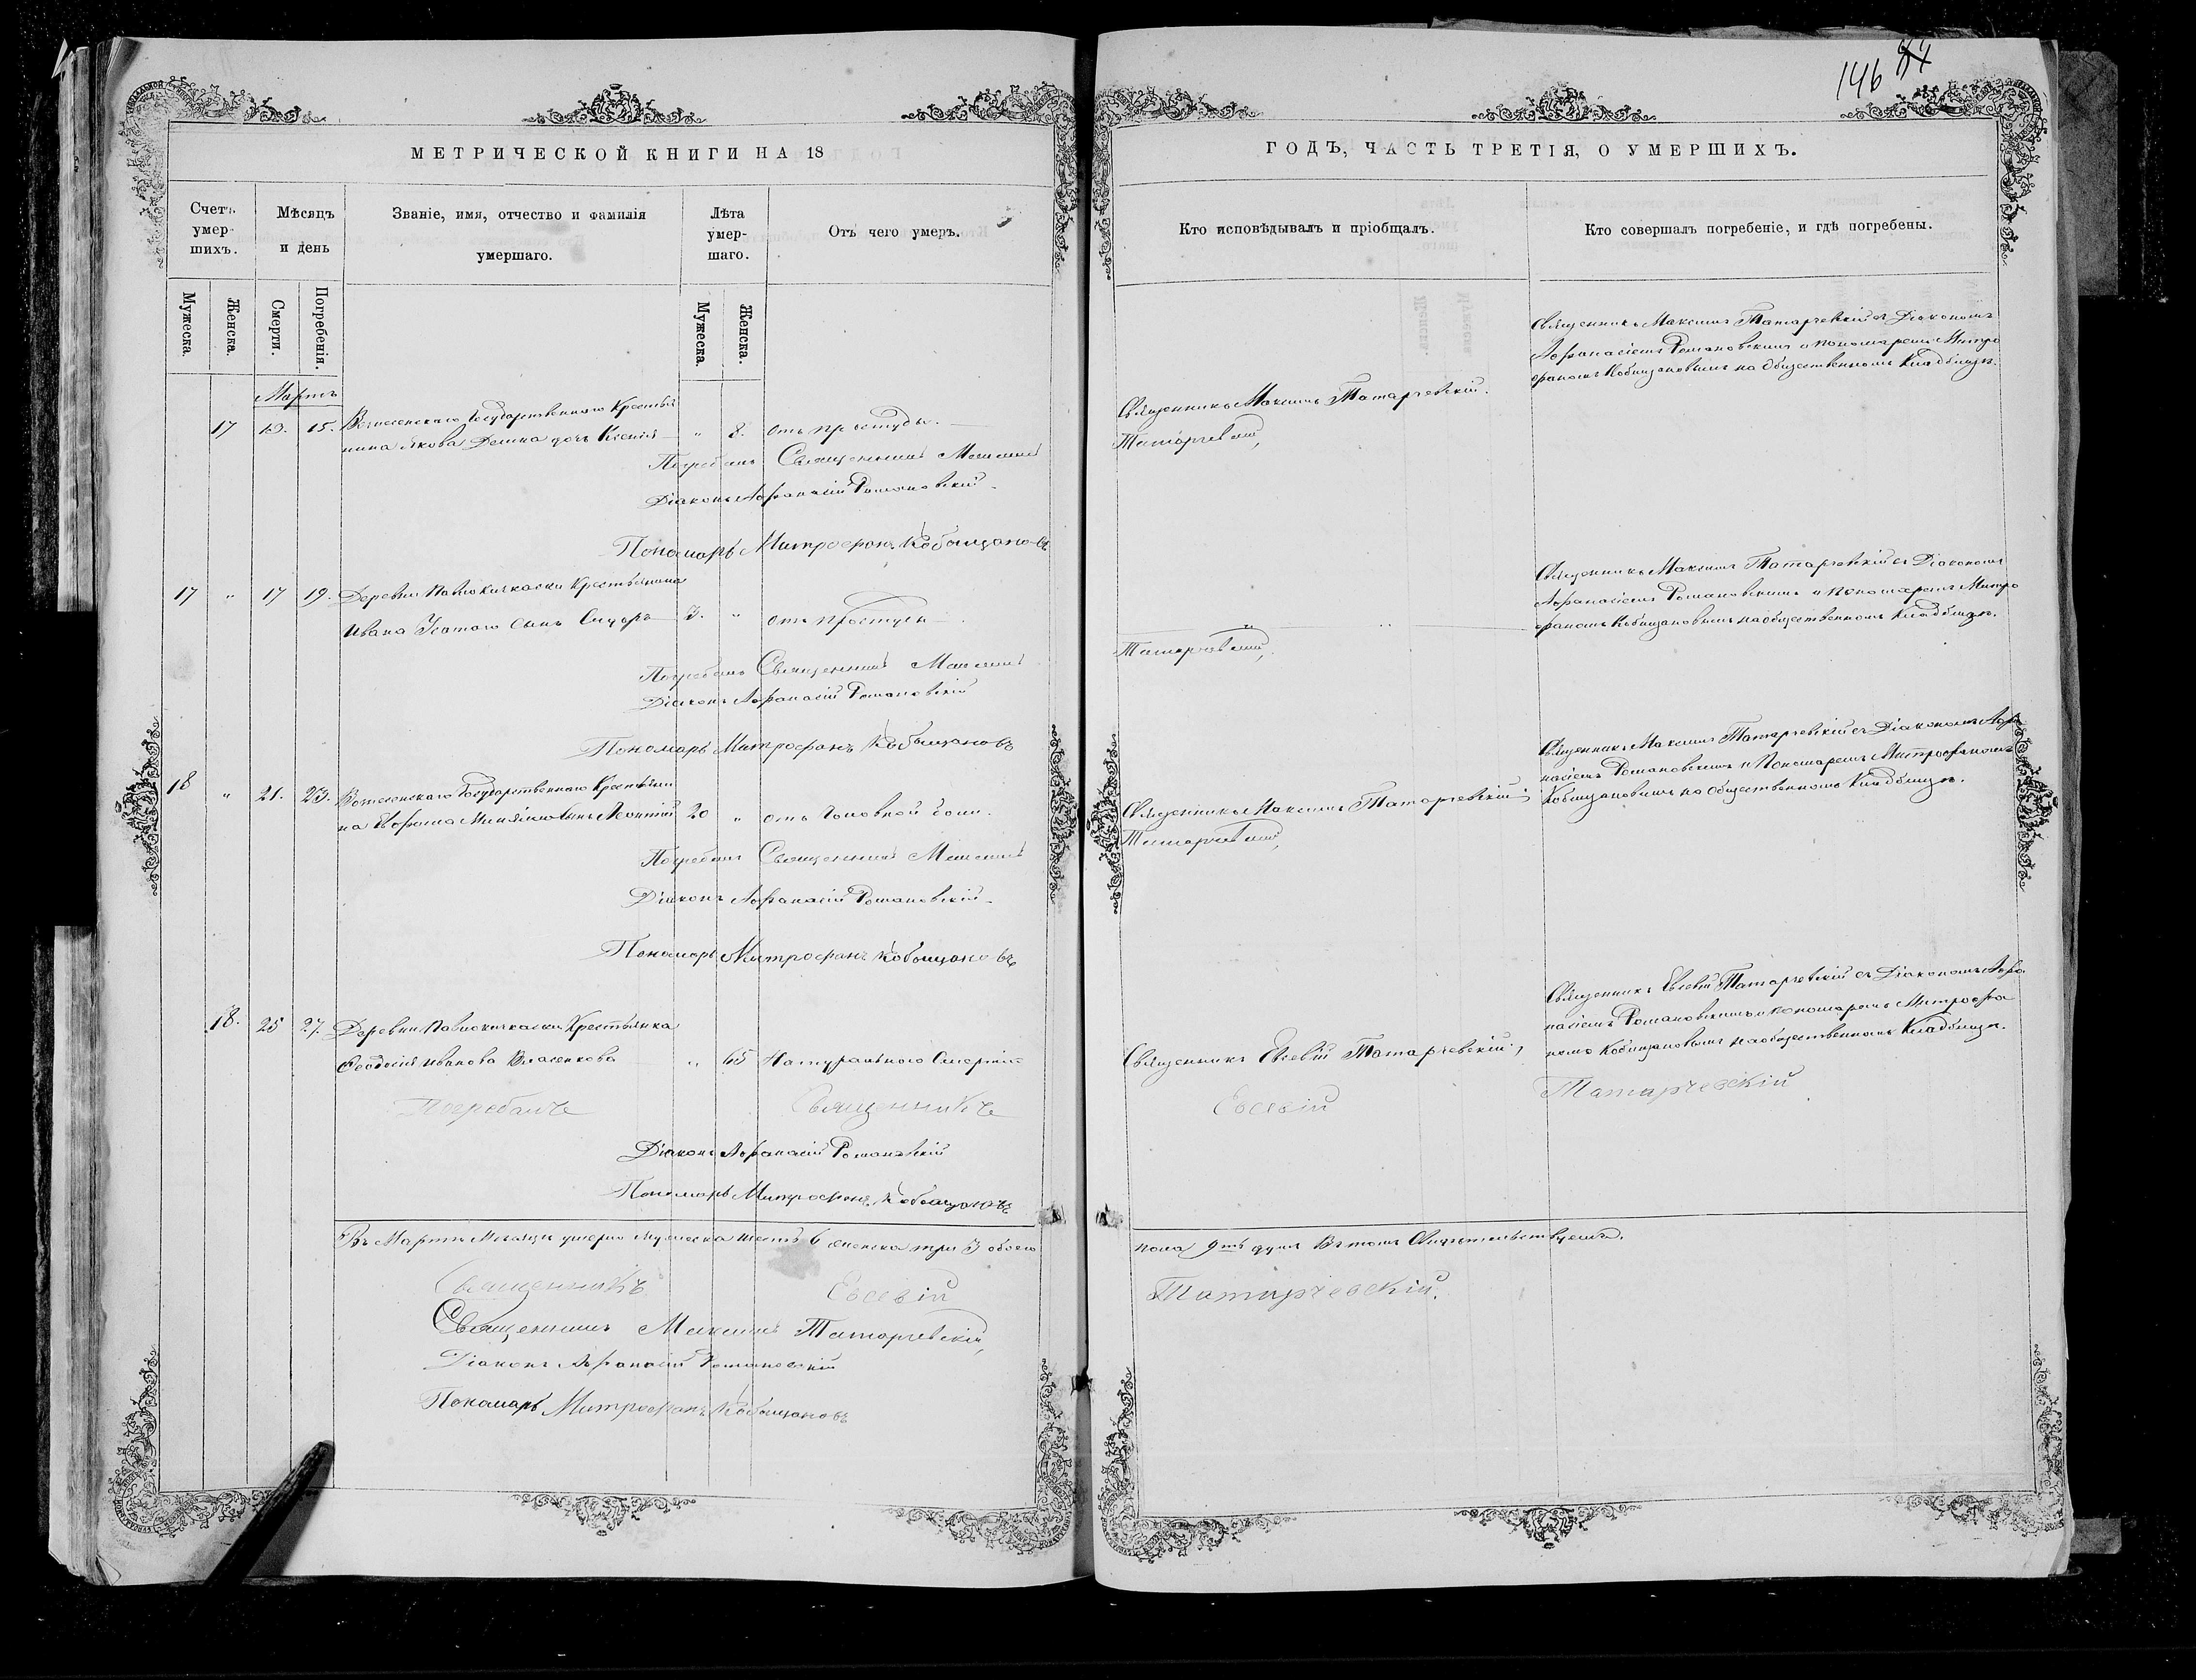 146 84
МЕТРИЧЕСКОЙ КНИГИ НА 18
ГОДЪ, ЧАСТЬ ТРЕТІЯ, О УМЕРШИХЪ.
Счетъ умершихъ.
Мѣсяцъ и день
Званіе, имя, отчество и фамилія умершаго.
Лѣта умершаго.
Отъ чего умеръ.
Кто исповѣдывалъ и пріобщалъ.
Кто совершалъ погребеніе, и гдѣ погребены.
Мужеска.
Женска.
Смерти.
Погребенія.
Мужеска.
Женска.
Мартъ
17 13. 15. Вознесенскаго Государственнаго Крестья
нина Якова дочь Ксенія " 8. отъ простуды.
Священникъ Максимъ Татарчевскій.
Священникъ Максимъ Татарчевскій съ Діакономъ
Афанасіемъ Романовскимъ и пономаремъ Митро
фаномъ Кобищановымъ на Общественномъ Кладбищѣ.
Погребалъ Священникъ Максимъ
Татарчевскій,
Діаконъ Афанасій Романовскій
Пономарь Митрофанъ Кобыщановъ
17 " 17 19. Деревни Павлокичкаски Крестьянина
Ивана Усатаго сынъ Сидоръ 3. " отъ простуды
Священникъ Максимъ Татарчевскій съ Діакономъ
Афанасіемъ Романовскимъ и пономаремъ Митро
фаномъ Кобищановымъ на общественномъ Кладбищѣ.
Погребалъ Священникъ Максимъ
Татарчевскій,
Діаконъ Афанасій Романовскій
Пономарь Митрофанъ Кобыщановъ
18 " 21. 23. Вознесенскаго Государственнаго Крестьяни
на сынъ 20 " отъ Головной боли.
Священникъ Максимъ Татарчевскій
Священникъ Максимъ Татарчевскій съ Діакономъ Афа
насіемъ Романовскимъ и Пономаремъ Митрофаномъ
Кобищановымъ на Общественномъ Кладбищѣ.
Погребалъ Священникъ Максимъ
Татарчевскій,
Діаконъ Афанасій Романовскій
Пономарь Митрофанъ Кобыщановъ
18. 25 27. Деревни Павлокичкаски Крестьянка
Феодосія Иванова Власенкова " 65 Натуральною Смертію
Священникъ Евсевій Татарчевскій,
Священникъ Евсевій Татарчевскій съ Діакономъ Афа
насіемъ Романовскимъ и пономаремъ Митрофа
номъ Кобищановымъ на общественномъ Кладбищѣ.
Погребалъ Священникъ Евсевій Татарчевскій
Діаконъ Афанасій Романовскій
Пономарь Митрофанъ Кобыщановъ
Въ Мартѣ Месяцѣ умерло мужеска шесть 6 женска три 3 обоего
пола 9ть душъ Въ томъ Свидѣтельствуемъ.
Священникъ Евсевій Татарчевскій.
Священникъ Максимъ Татарчевскій,
Діаконъ Афанасій Романовскій
Пономарь Митрофанъ Кобыщановъ